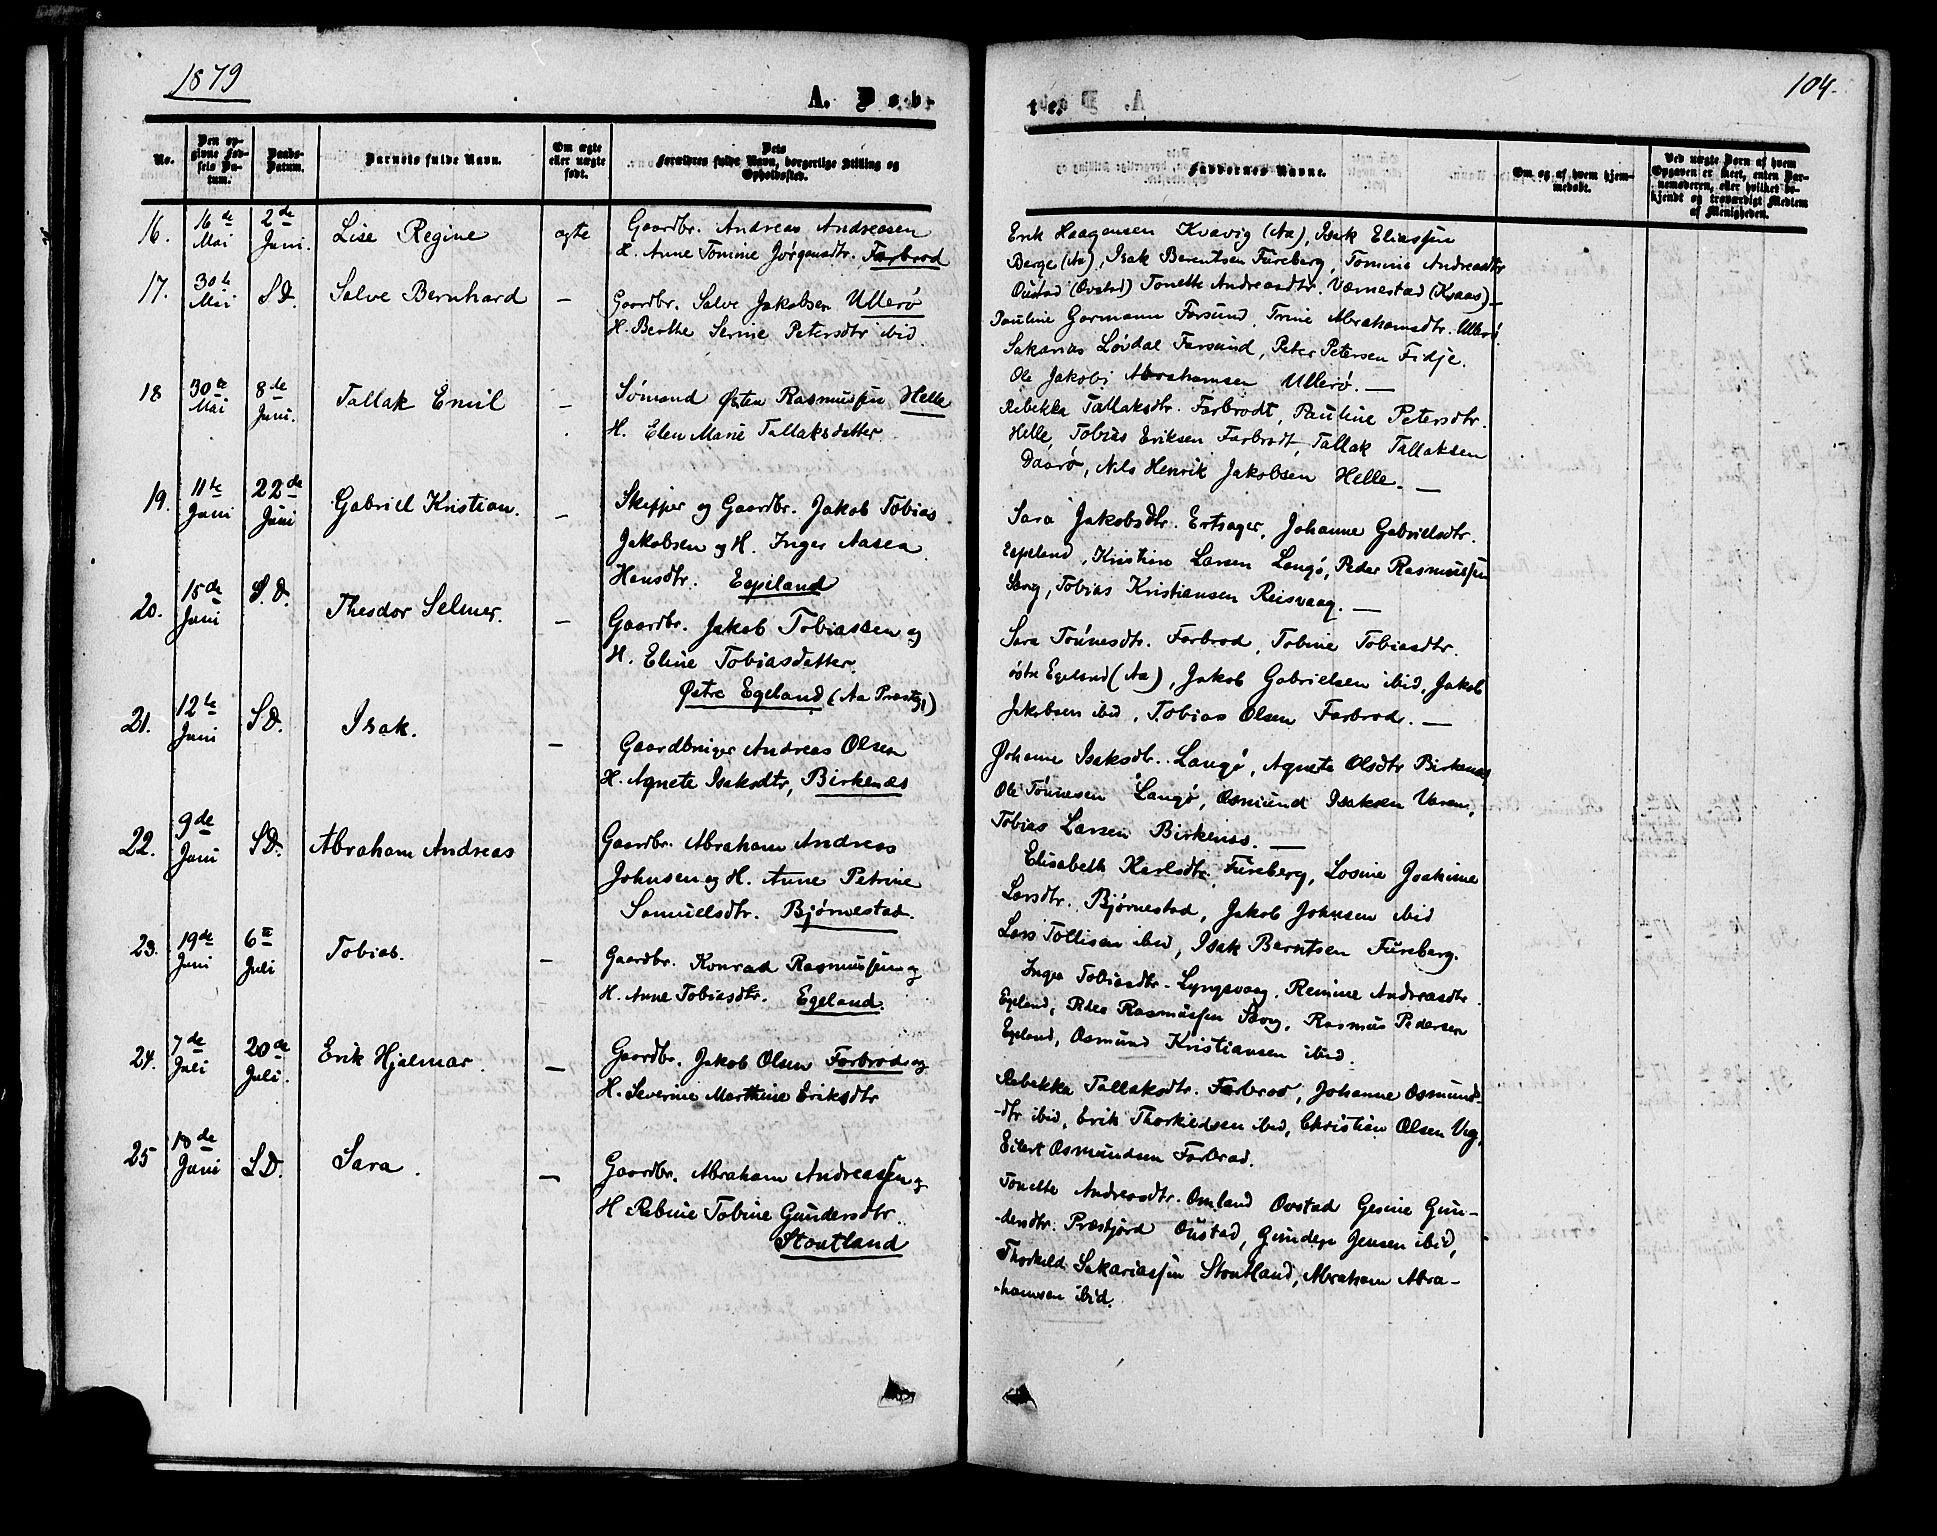 1879
A. Døb-
te.
104.
No.
Den op-
givne Fød-
sels Da-
tum.
Daabs-
Datum.
Barnets fulde Navn.
Om ægte
eller uægte
født.
Dets
Forældres fulde Navn, borgerlige Stilling og
Opholdssted.
Faddernes Navne.
Om og af hvem hjem-
medøbt.
Ved uægte Børn af hvem
Opgaven er skeet, enten Bar-
nemoderen, eller hvilket be-
kjendt og troværdigt Medlem
af Menigheden.
16. 16de Mai 2de Juni. Lise Regine ægte
Gaardbr. Andreas Andreasen
H. Anne Tomine Jørgensdtr. Farbrod
Erik Haagensen Kvavig (Aa), Isak Eliassen
Berge (Aa), Isak Berentsen Fureberg, Tomine Andreasdtr
Oustad (Ovstad) Tonette Andreasdtr. Værnestad (Kvaas) —
17. 30te Mai S.D. Salve Bernhard —
Gaardbr. Salve Jakobsen Ullerø
H. Berthe Serine Petersdtr ibid.
Pauline Gormann Farsund, Trine Abrahamsdtr. Ullerø.
Sakarias Løvdal Farsund, Peter Petersen Fidje.
Ole Jakobj Abrahamsen Ullerø. —
18 30te Mai 8de Juni. Tallak Emil —
Sømand Østen Rasmussen Helle
H. Elen Marie Tallaksdatter
Rebekka Tallaksdtr. Farbrodt, Pauline Petersdtr.
Helle, Tobias Eriksen Farbrodt, Tallak Tallaksen
Daarø, Nils Henrik Jakobsen Helle. —
19. 11te Juni 22de Juni Gabriel Kristian. —
Skipper og Gaardbr. Jakob Tobias
Jakobsen og H. Inger Aasea
Hansdtr. Egeland
Sara Jakobsdtr. Ertsager, Johanne Gabrielsdtr.
Egeland, Kristian Larsen Langø, Peder Rasmussen
Tobias Kristiansen Reisvaag. —
20. 15de Juni S.D. Theodor Selmer. —
Gaardbr. Jakob Tobiassen og
H. Eline Tobiasdatter.
Østre Egeland (Aa Præstgj)
Sara Tønnesdtr. Farbrod, Tobine Tobiasdtr.
østre Egeland (Aa), Jakob Gabrielsen ibid, Jakob
Jakobsen ibid, Tobias Olsen Farbrod. —
21. 12te Juni S.D. Isak. —
Gaardbruger Andreas Olsen
H. Agnete Isaksdtr, Birkenæs
Johanne Isaksdtr. Langø, Agnete Olsdtr Birkenæs
Ole Tønnesen Langø, Osmund Isaksen
Tobias Larsen Birkenæs. —
22. 9de Juni S.D. Abraham Andreas
Gaardbr. Abraham Andreas
Johnsen og H. Anne Petrine
Samuelsdtr. Bjørnestad.
Elisabeth Karlsdtr. Fureberg, Losine Joakime
Larsdtr. Bjørnestad, Jakob Johnsen ibid
Lars Tollisen ibid, Isak Berntsen Fureberg.
23. 19de Juni 6te Juli Tobias. —
Gaardbr. Konrad Rasmussen og
H. Anne Tobiasdtr. Egeland.
Inger Tobiasdtr. Lyngsvaag, Remine Andreasdtr.
Egeland, Peder Rasmussen Rasmus Pedersen
Egeland, Osmund Kristiansen ibid.
24. 7de Juli 20de Juli. Erik Hjalmar. —
Gaardbr. Jakob Olsen Farbrod og
H. Severine Marthine Eriksdtr
Rebekka Tallaksdtr. Farbrod, Johanne Osmunds-
-dtr ibid, Erik Thorkildsen ibid, Christian Olsen
Eilert Osmundsen Farbrod.
25 18de Juni S.D. Sara. —
Gaardbr. Abraham Andreassen og
H Rebine Tobine Gundersdtr.
Stoutland
Tonette Andreasdtr. Omland Ovstad Gesine Gun-
-dersdtr. Præstjord Oustad, Gunder Jensen ibid,
Thorkild Sakariassen Stoutland, Abraham Abra-
-hamsen ibid.